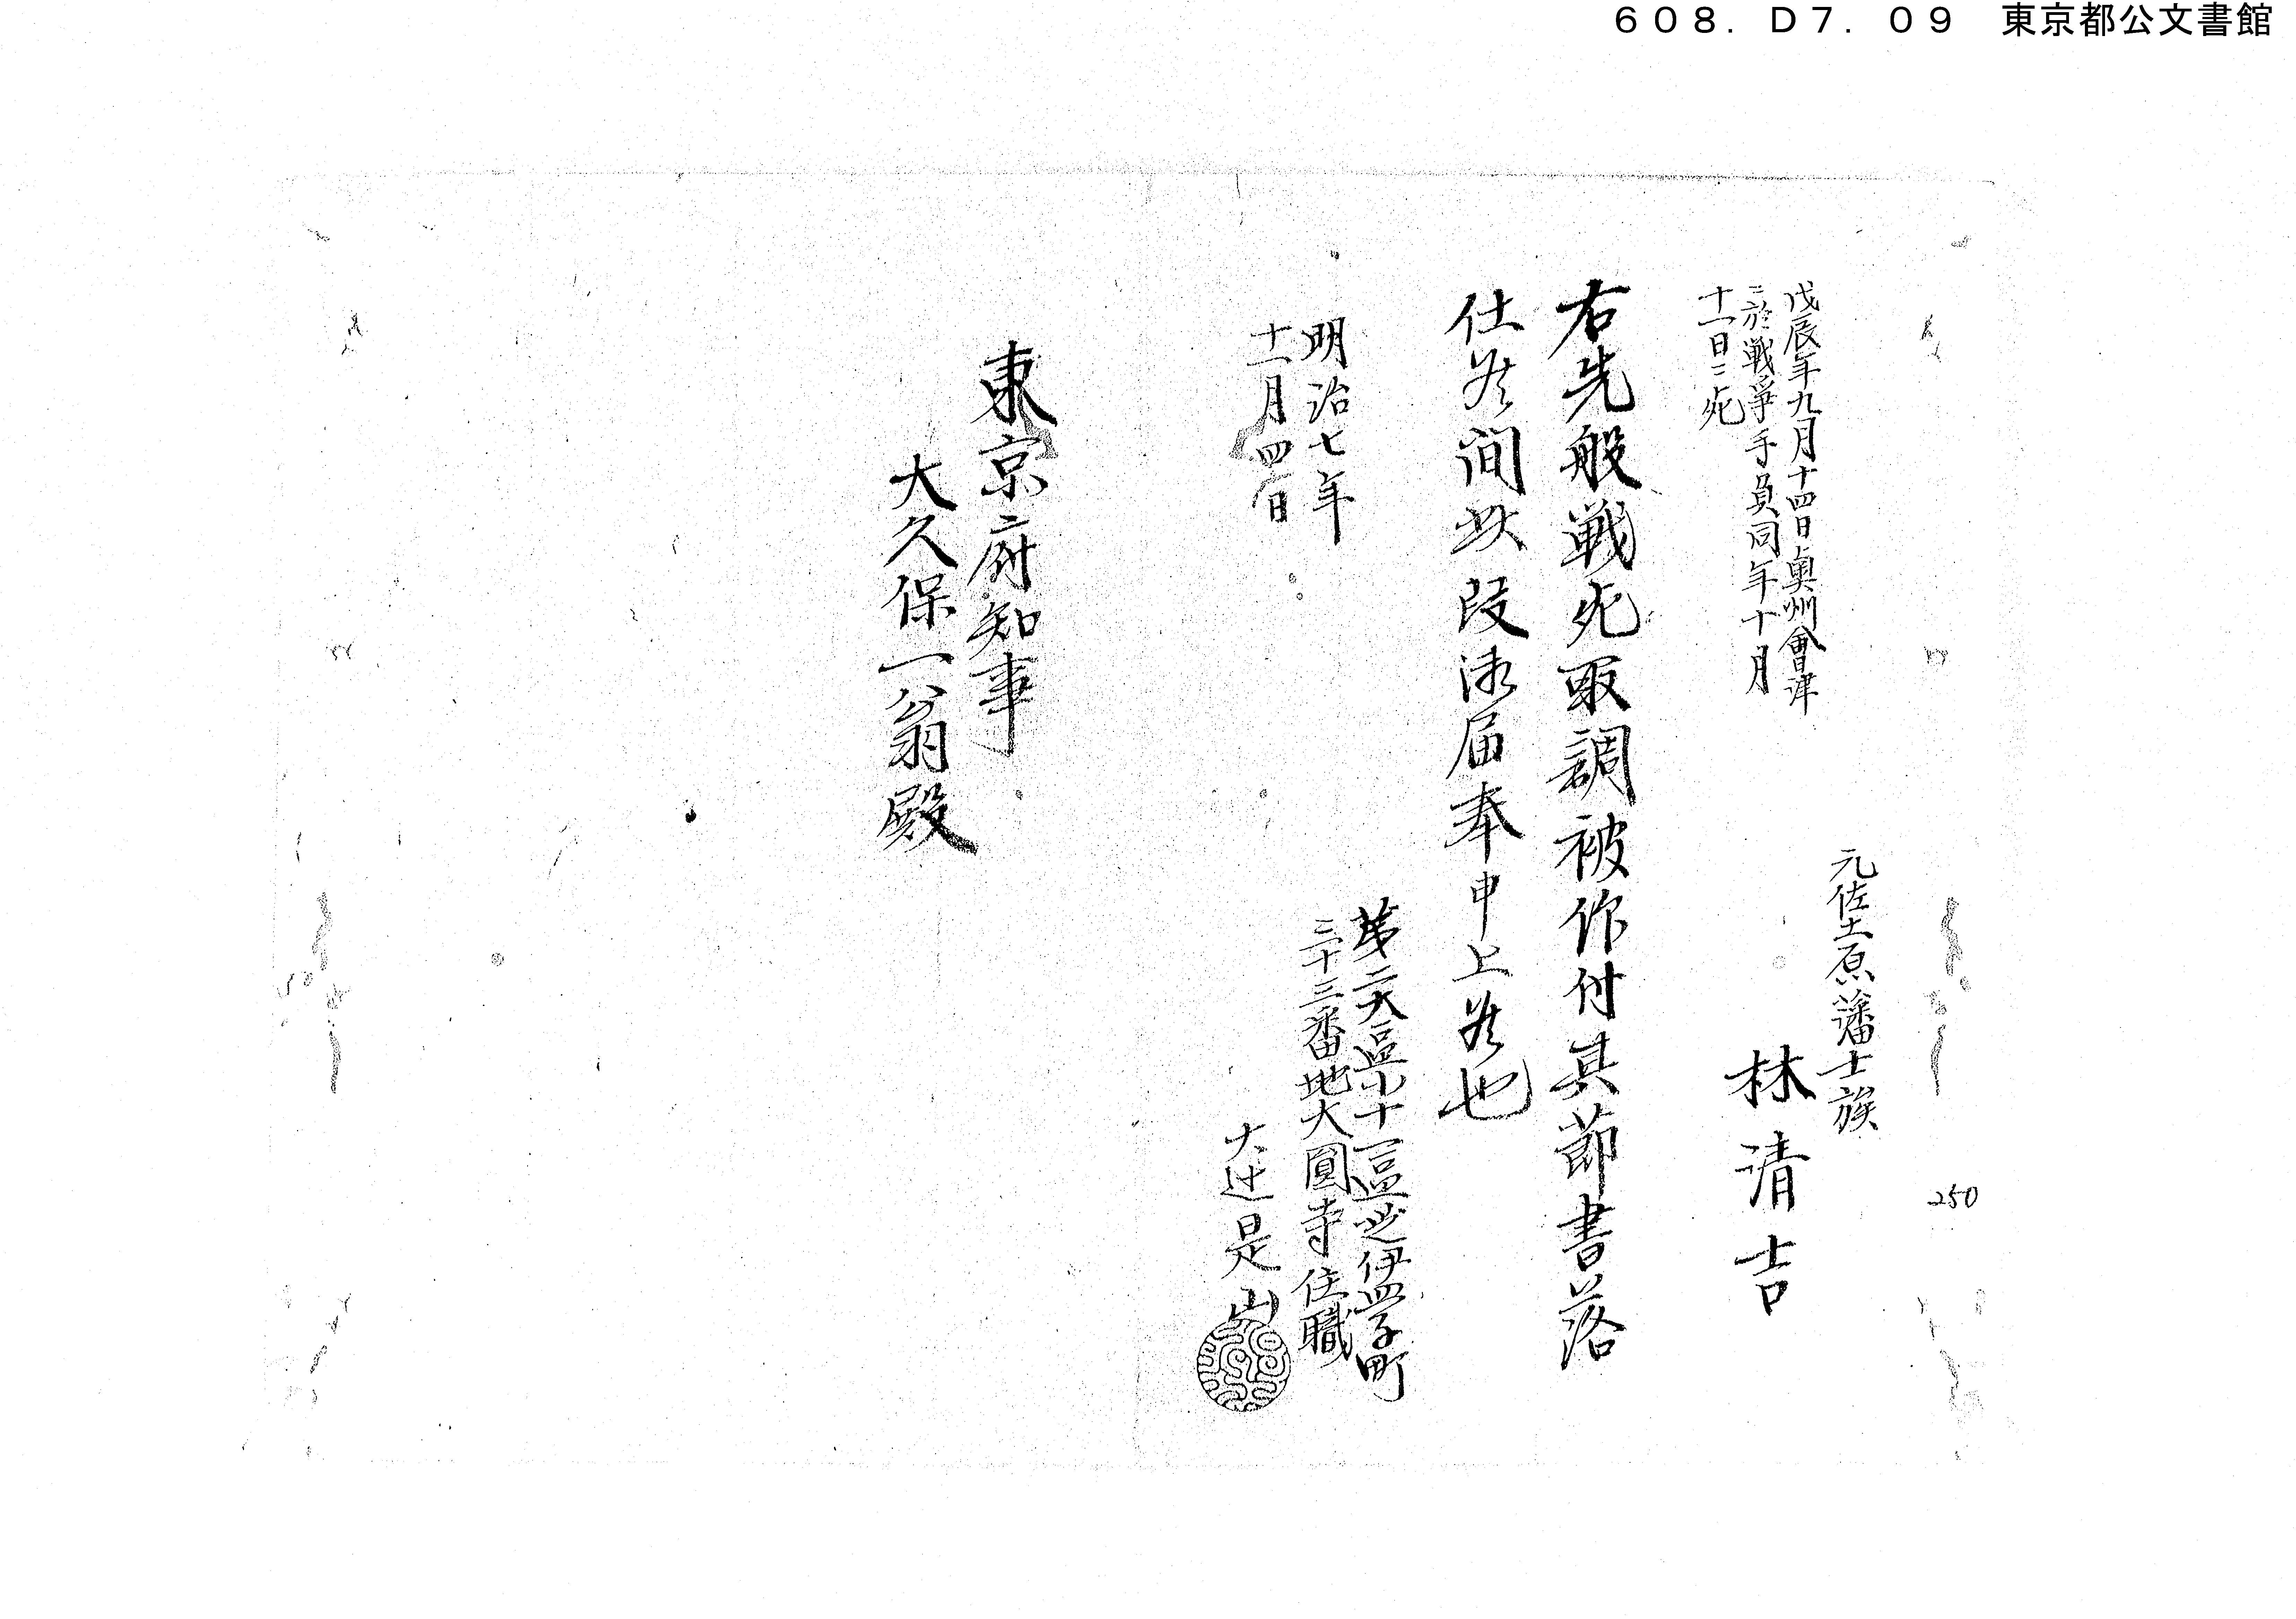 608. D7. 09 東京都公文書館
元佐土原藩士族
林清吉
戊辰年九月十四日奥州會津
ニ於戦爭手負同年十月
十一日ニ死
右先般戦死取調被作付其節書落
仕候間此段御届奉申上候也
明治七年
十一月四日
第二大區小十一區芝伊皿子町
三十三番地大圓寺住職
大辻是山
東京府知事
大久保一翁殿
250